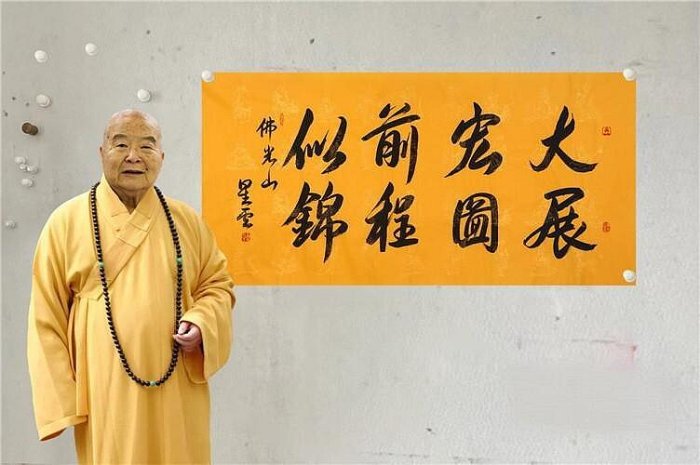 大展
宏圖
前程
似錦
佛光山
星雲